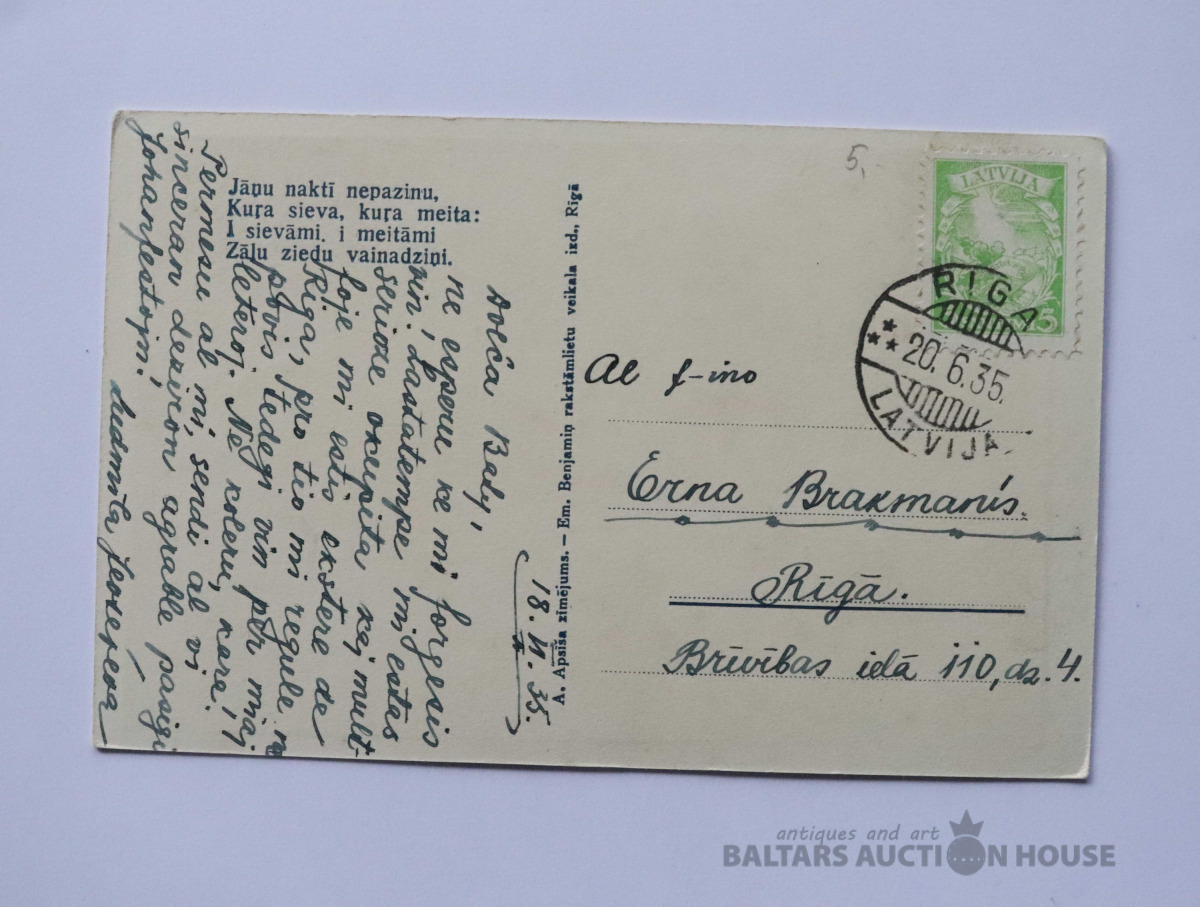 Jāņu naktī nepazinu,
Kuŗa sieva, kuŗa meita:
I sievāmi, i meitāmi
Zāļu ziedu vainadziņi.
A. Apsīša zīmējums. — Em. Benjamiņ rakstāmlietu veikala izd., Rīgā
18. VI. 35.
Dolĉa Bebj,
ne esperu ke mi forgesis
vin, Lastatempe mi estas
serioze okupita kaj mult-
foje mi estis ekstere de
Riga, pro tio mi regule ne
povis tedegi vin per miaj
leteroj. Ne koleru, kara,!
Permesu al mi, sendi al vi
sinceran deziron agrable pasigi
Johanfestojn!
Ludmila
5,-
LATVIJA
5
RIGA
20.6.35.
LATVIJA
Al f-ino
Erna Brakmanis.
Rīgā.
Brīvības ielā 110, dz. 4.
antiques and art
BALTARS AUCTION HOUSE